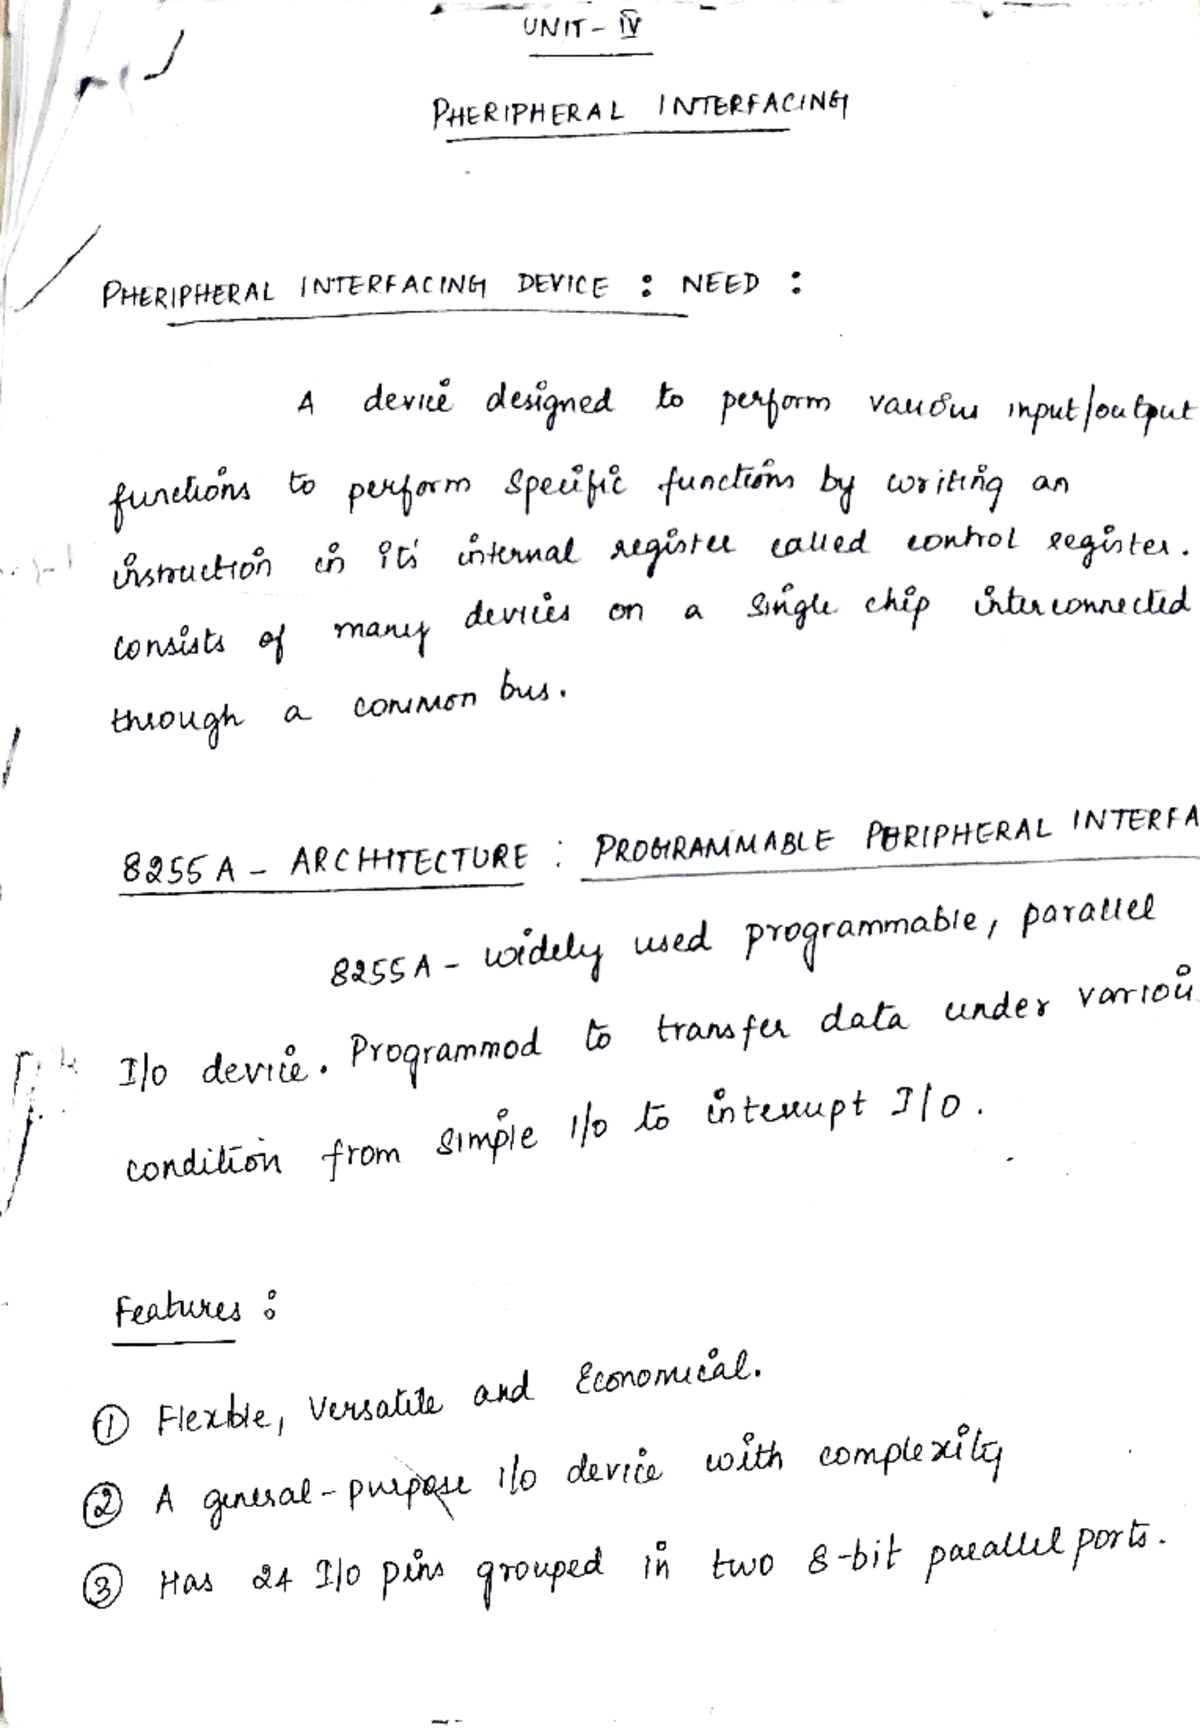 UNIT - IV
PHERIPHERAL INTERFACING
PHERIPHERAL INTERFACING DEVICE : NEED :
A device designed to perform various input/output
functions to perform specific functions by writing an
instruction in its' internal register called control register.
consists of many devices on a single chip interconnected
through a common bus.
8255A - ARCHITECTURE : PROGRAMMABLE PERIPHERAL INTERFA
8255A - widely used programmable, parallel
I/o device. Programmod to transfer data under variou
condition from simple I/o to interrupt I/O.
Features :
① Flexble, Versatile and Economical.
② A general-purpose i/o device with complexity
③ Has 24 I/o pins grouped in two 8-bit parallel ports.